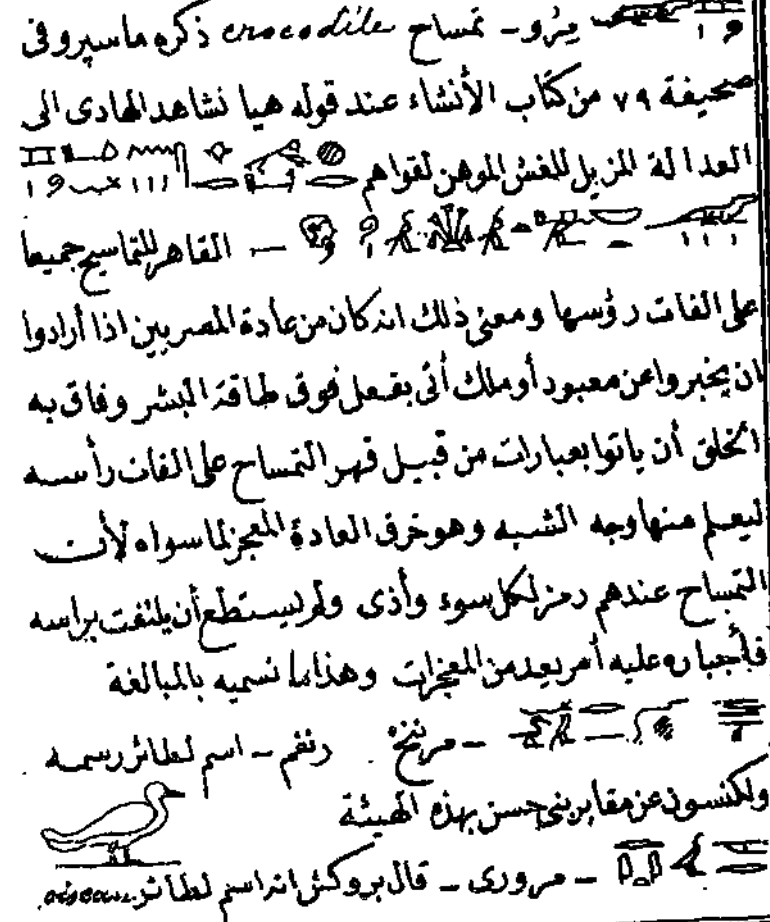 يزو - تمساح crocodile ذكره ماسپرو فى
صحيفة ٧٩ من كتاب الأنشاء عند قوله هيا نشاهد الهادى الى
العدالة المزيل للغش الموهن لقواهم
– القاهر للتماسيح جميعا
على التفات رؤسها ومعنى ذلك انه كان من عادة المصريين اذا أرادوا
ان يخبروا عن معبود أو ملك أتى بفعل فوق طاقة البشر وفاق به
الخلق أن ياتوا بعبارات من قبيل قهر التمساح على التفات رأسه
ليعلم منها وجه الشبه وهو خرق العادة المعجز لما سواه لأن
التمساح عندهم رمز لكل سوء وأذى ولم يستطع أن يلتفت براسه
فأجباره عليه أمر يعد من المعجزات وهذا ما نسميه بالمبالغة
- اسم لطائر رسمه
ولكنسون عن مقابر بنى حسن بهذه الهيئة
- مرورى - قال بروكش انه اسم لطائر oiseau